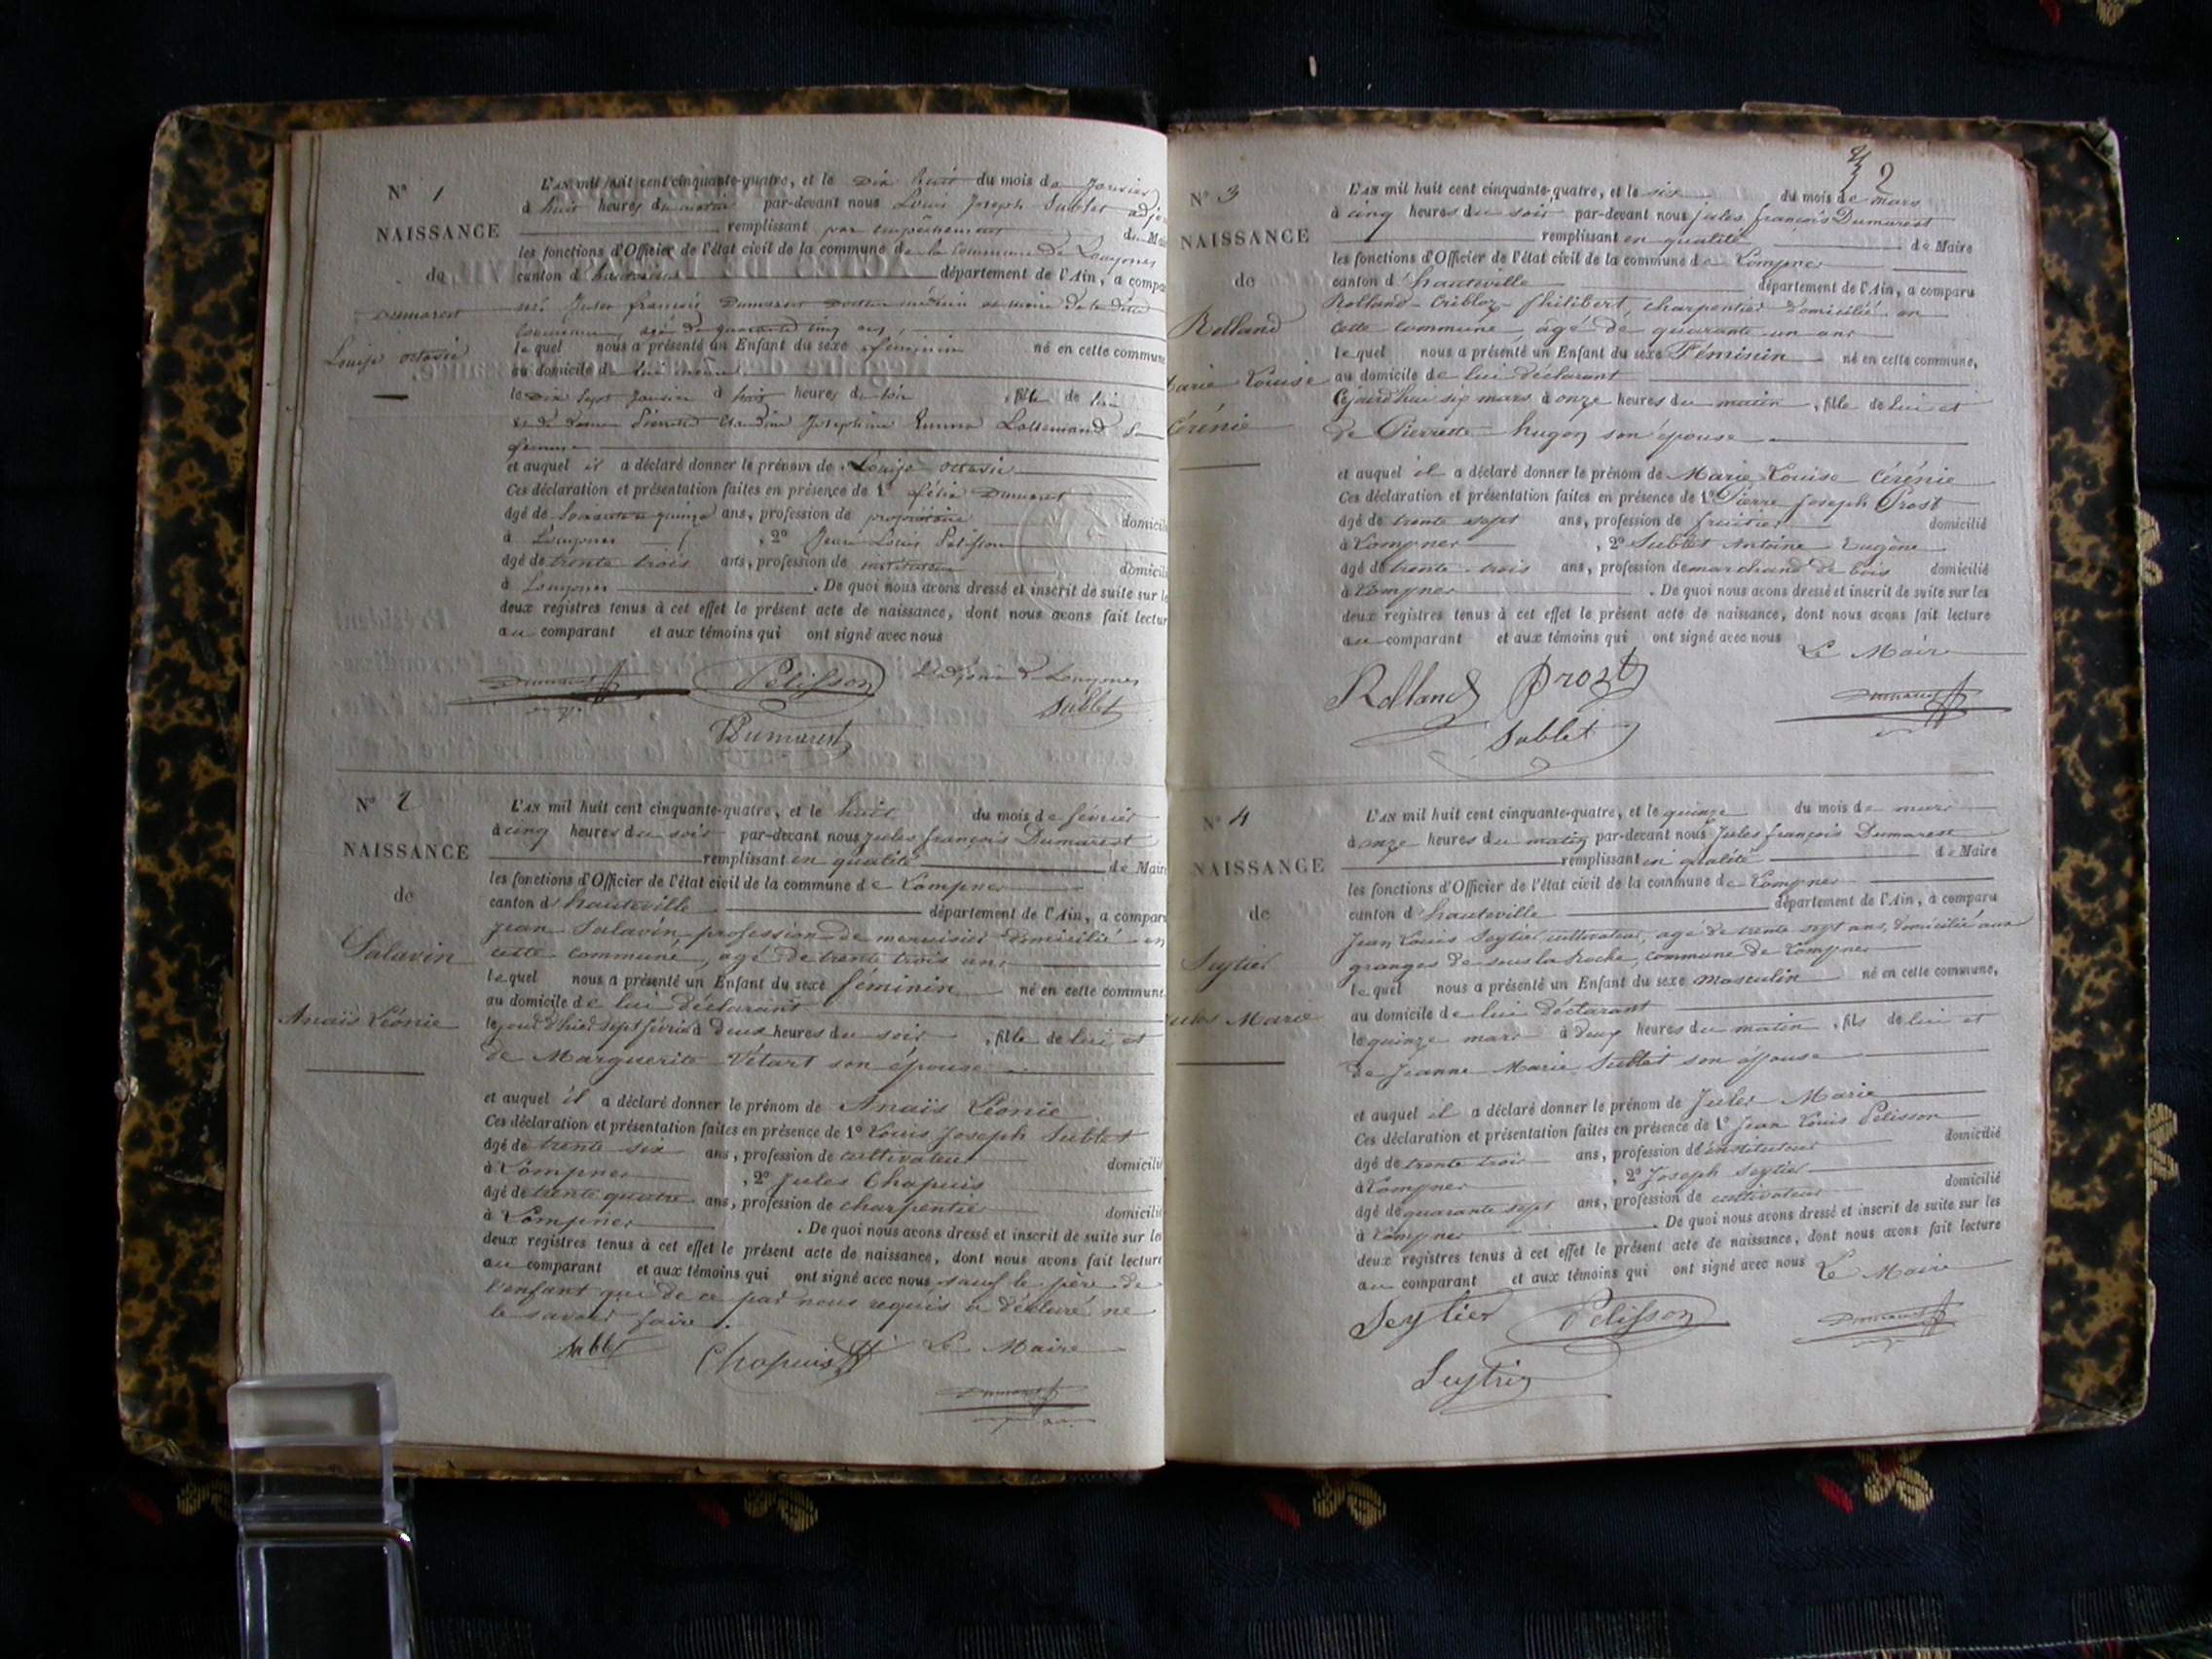 N° 1
NAISSANCE
de
Dumarest
Louise octavie
L'AN mil huit cent cinquante-quatre, et le dix huit du mois de Janvier
à huit heures du matin par-devant nous Louis Joseph Sublet adjoint
remplissant par empêchement du Maire
les fonctions d'Officier de l'état civil de la commune de la Commune de Lompnes
canton d' hauteville département de l'Ain, a comparu
mr. Jules françois Dumarest Docteur médecin et maire de la dite
Commune, agé de quarante cinq ans,
lequel nous a présenté un Enfant du sexe féminin né en cette commune
au domicile de lui même
le dix sept Janvier à huit heures du soir , fille de lui
et de Dame Pierrette Claudine Josephine Emma Lallemand sa
femme
et auquel il a déclaré donner le prénom de Louise octavie
Ces déclaration et présentation faites en présence de 1° félix Dumarest
âgé de Soixante et quinze ans, profession de propriétaire domicilié
à Lompnes , 2° Jean Louis Pelisson
âgé de trente trois ans, profession de instituteur domicilié
à Lompnes . De quoi nous avons dressé et inscrit de suite sur les
deux registres tenus à cet effet le présent acte de naissance, dont nous avons fait lecture
au comparant et aux témoins qui ont signé avec nous
Dumarest Pelisson L'adjoint de Lompnes
Sublet
Dumarest
N° 2
NAISSANCE
de
Salavin
Anaïs Léonie
L'AN mil huit cent cinquante-quatre, et le huit du mois de février
à cinq heures du soir par-devant nous Jules françois Dumarest
remplissant en qualité de Maire
les fonctions d'Officier de l'état civil de la commune de Lompnes
canton d' hauteville département de l'Ain, a comparu
Jean Salavin profession de menuisier domicilié en
cette commune, agé de trente trois ans
lequel nous a présenté un Enfant du sexe féminin né en cette commune,
au domicile de lui déclarant
le jour d'hier sept février à deux heures du soir , fille de lui et
de Marguerite Vétart son épouse
et auquel il a déclaré donner le prénom de Anaïs Léonie
Ces déclaration et présentation faites en présence de 1° Louis Joseph Sublet
âgé de trente six ans, profession de cultivateur domicilié
à Lompnes , 2° Jules Chapuis
âgé de trente quatre ans, profession de charpentier domicilié
à Lompnes . De quoi nous avons dressé et inscrit de suite sur les
deux registres tenus à cet effet le présent acte de naissance, dont nous avons fait lecture
au comparant et aux témoins qui ont signé avec nous sauf le père de
l'enfant qui de ce par nous requis a déclaré ne
le savoir faire.
Sublet Chapuis Le Maire
Dumarest
2
N° 3
NAISSANCE
de
Rolland
Marie Louise
Cérénie
L'AN mil huit cent cinquante-quatre, et le six du mois de mars
à cinq heures du soir par-devant nous Jules françois Dumarest
remplissant en qualité de Maire
les fonctions d'Officier de l'état civil de la commune de Lompnes
canton d' hauteville département de l'Ain, a comparu
Rolland-Criblez Philibert, charpentier domicilié en
cette commune, agé de quarante un ans
lequel nous a présenté un Enfant du sexe Féminin né en cette commune,
au domicile de lui déclarant
Cejourd'hui six mars à onze heures du matin , fille de lui et
de Pierrette hugon son épouse
et auquel il a déclaré donner le prénom de Marie Louise Cérénie
Ces déclaration et présentation faites en présence de 1° Pierre Joseph Prost
âgé de trente sept ans, profession de fruitier domicilié
à Lompnes , 2° Sublet Antoine Eugène
âgé de trente-trois ans, profession de marchand de bois domicilié
à Lompnes . De quoi nous avons dressé et inscrit de suite sur les
deux registres tenus à cet effet le présent acte de naissance, dont nous avons fait lecture
au comparant et aux témoins qui ont signé avec nous
Le Maire
Rolland Prost Dumarest
Sublet
N° 4
NAISSANCE
de
Seytier
Jules Marie
L'AN mil huit cent cinquante-quatre, et le quinze du mois de mars
à onze heures du matin par-devant nous Jules françois Dumarest
remplissant en qualité de Maire
les fonctions d'Officier de l'état civil de la commune de Lompnes
canton d' hauteville département de l'Ain, a comparu
Jean Louis Seytier cultivateur, agé de trente sept ans, domicilié aux
granges de sous la Roche, commune de Lompnes
lequel nous a présenté un Enfant du sexe masculin né en cette commune,
au domicile de lui déclarant
le quinze mars à deux heures du matin , fils de lui et
de Jeanne Marie Sublet son épouse
et auquel il a déclaré donner le prénom de Jules Marie
Ces déclaration et présentation faites en présence de 1° Jean Louis Pelisson
âgé de trente trois ans, profession d'instituteur domicilié
à Lompnes , 2° Joseph Seytier
âgé de quarante sept ans, profession de cultivateur domicilié
à Lompnes . De quoi nous avons dressé et inscrit de suite sur les
deux registres tenus à cet effet le présent acte de naissance, dont nous avons fait lecture
au comparant et aux témoins qui ont signé avec nous Le Maire
Seytier Pelisson Dumarest
Seytier